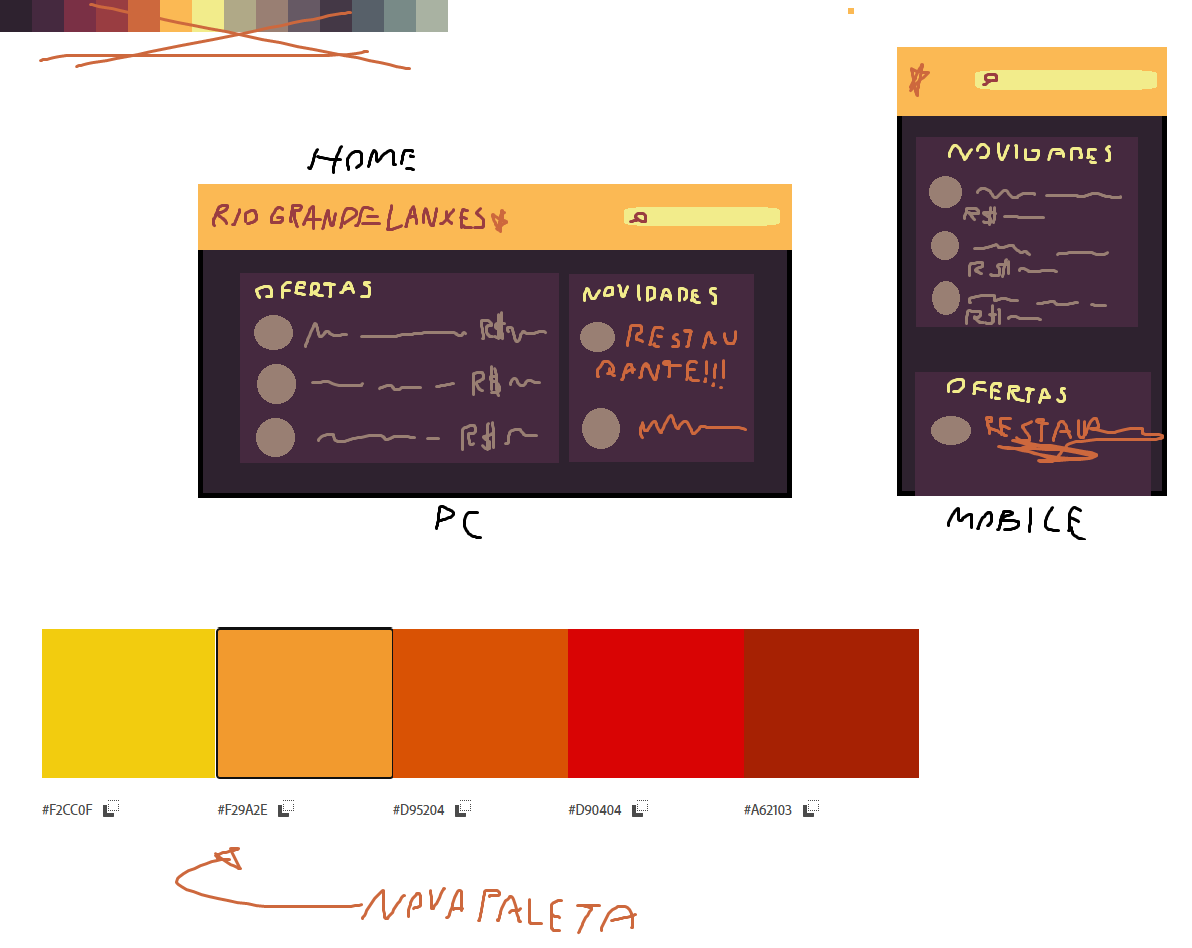 HOME
RIO GRANDE LANXES
OFERTAS
R$
R$
R$
NOVIDADES
RESTAU
RANTE!!!
PC
NOVIDADES
R$
R$
R$
OFERTAS
RESTAU
MOBILE
#F2CC0F
#F29A2E
#D95204
#D90404
#A62103
NOVA PALETA